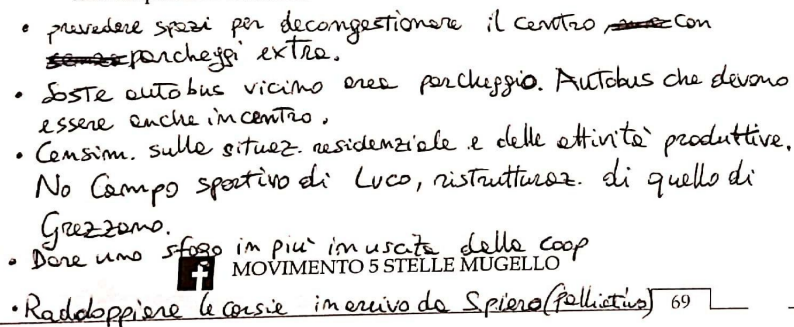 • prevedere spazi per decongestionare il centro con
parcheggi extra.
• Soste autobus vicino area parcheggio. Autobus che devono
essere anche in centro.
• Censim. sulla situaz. residenziale e delle attività produttive.
No Campo sportivo di Luco, ristrutturaz. di quello di
Grezzano.
• Dare uno sfogo in più in uscita della coop
MOVIMENTO 5 STELLE MUGELLO
• Raddoppiare le corsie in arrivo da Spiero (palliativo) 69